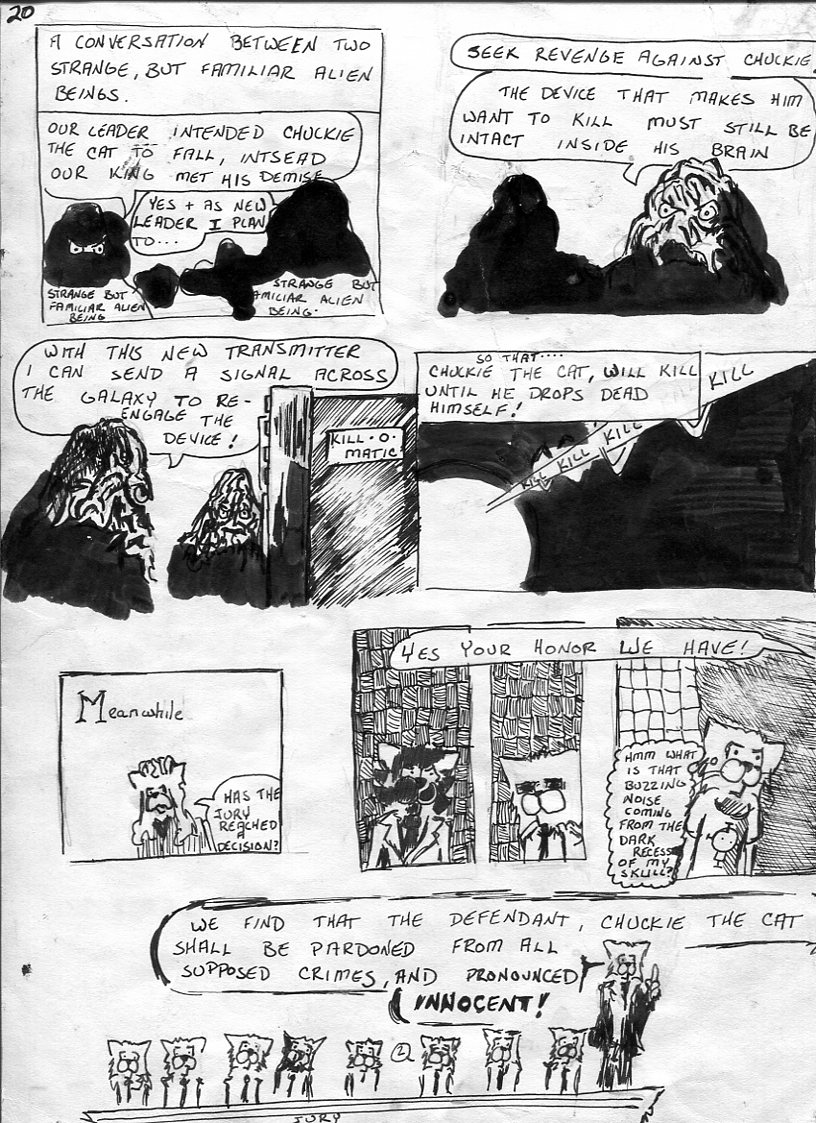 20
A CONVERSATION BETWEEN TWO
STRANGE, BUT FAMILIAR ALIEN
BEINGS.
OUR LEADER INTENDED CHUCKIE
THE CAT TO FALL, INTSEAD
OUR KING MET HIS DEMISE
YES + AS NEW
LEADER I PLAN
TO...
STRANGE BUT
FAMILIAR ALIEN
BEING
STRANGE BUT
FAMILIAR ALIEN
BEING.
SEEK REVENGE AGAINST CHUCKIE.
THE DEVICE THAT MAKES HIM
WANT TO KILL MUST STILL BE
INTACT INSIDE HIS BRAIN
WITH THIS NEW TRANSMITTER
I CAN SEND A SIGNAL ACROSS
THE GALAXY TO RE-
ENGAGE THE
DEVICE!
KILL-O-
MATIC
SO THAT....
CHUCKIE THE CAT, WILL KILL
UNTIL HE DROPS DEAD
HIMSELF!
KILL
KILL
KILL
KILL
KILL
Meanwhile
HAS THE
JURY
REACHED
A
DECISION?
YES YOUR HONOR WE HAVE!
HMM WHAT
IS THAT
BUZZING
NOISE
COMING
FROM THE
DARK
RECESS
OF MY
SKULL?
WE FIND THAT THE DEFENDANT, CHUCKIE THE CAT
SHALL BE PARDONED FROM ALL
SUPPOSED CRIMES, AND PRONOUNCED
INNOCENT!
JURY